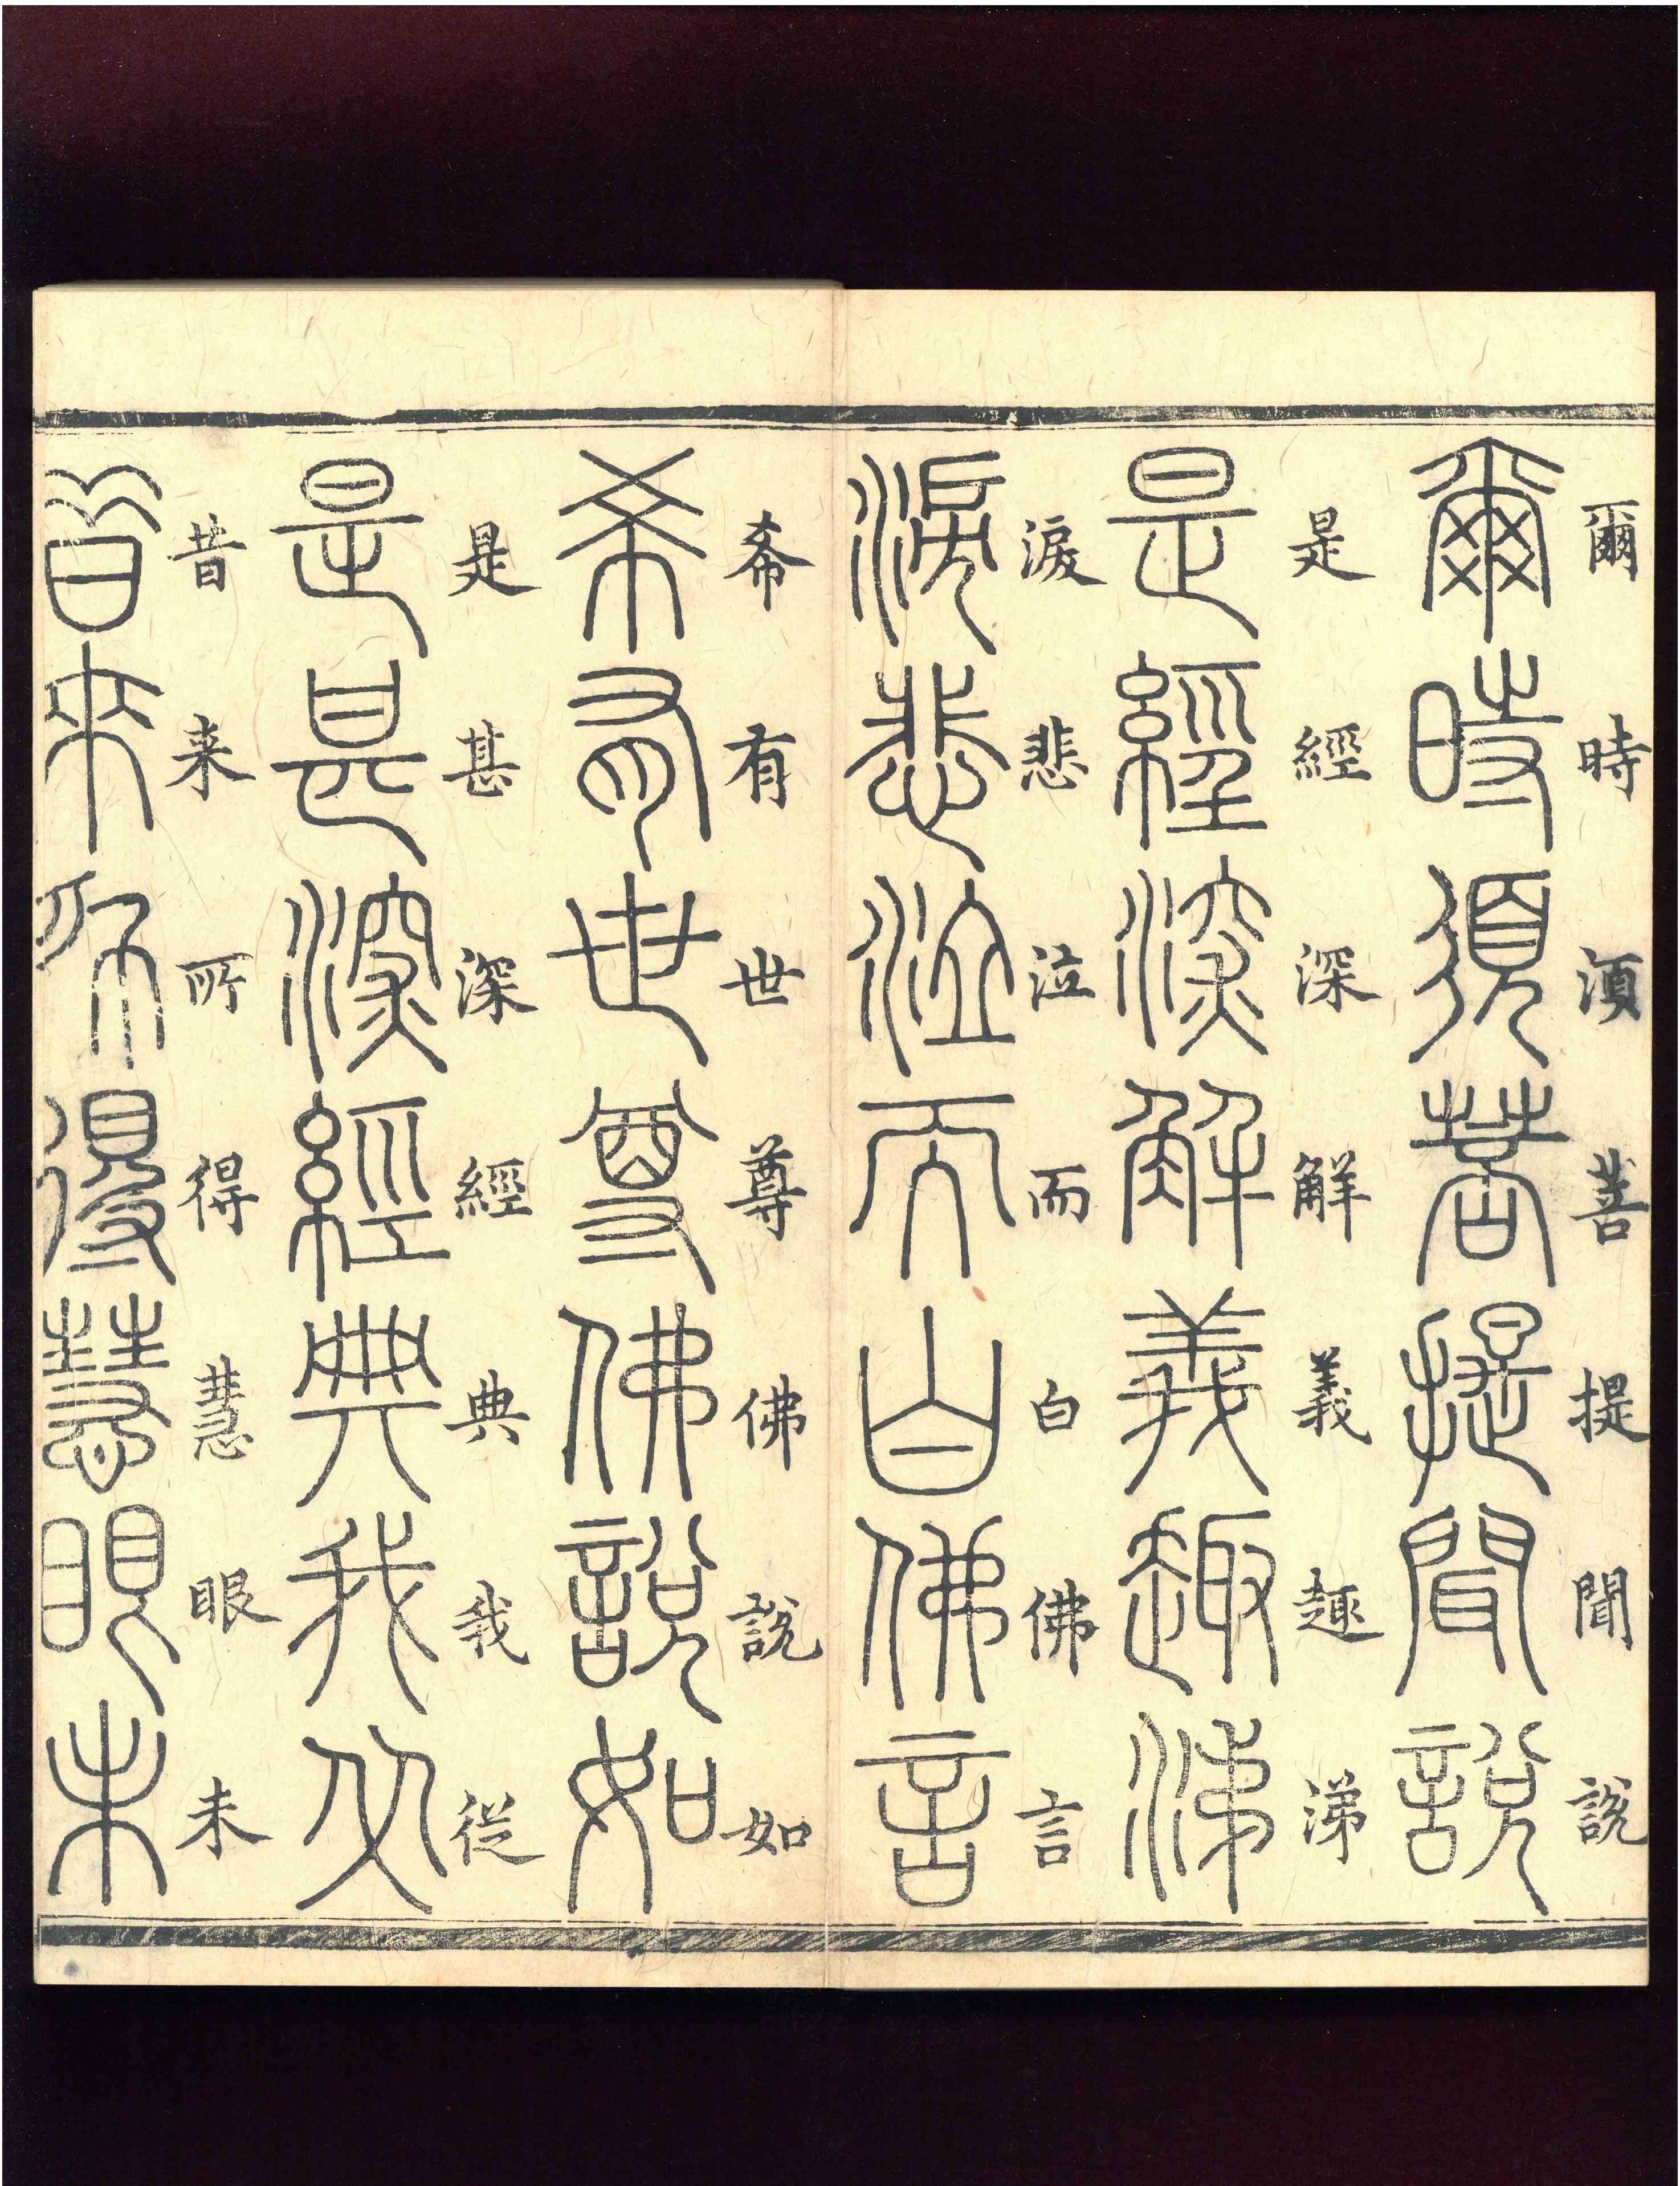 爾時湏菩提聞説
爾時須菩提聞説
是經深解義趣涕
是經深解義趣涕
淚悲泣而白佛言
淚悲泣而白佛言
希有世尊佛說如
希有世尊佛說如
是甚深經典我從
是甚深經典我从
昔来所得慧眼未
昔來所得慧眼未